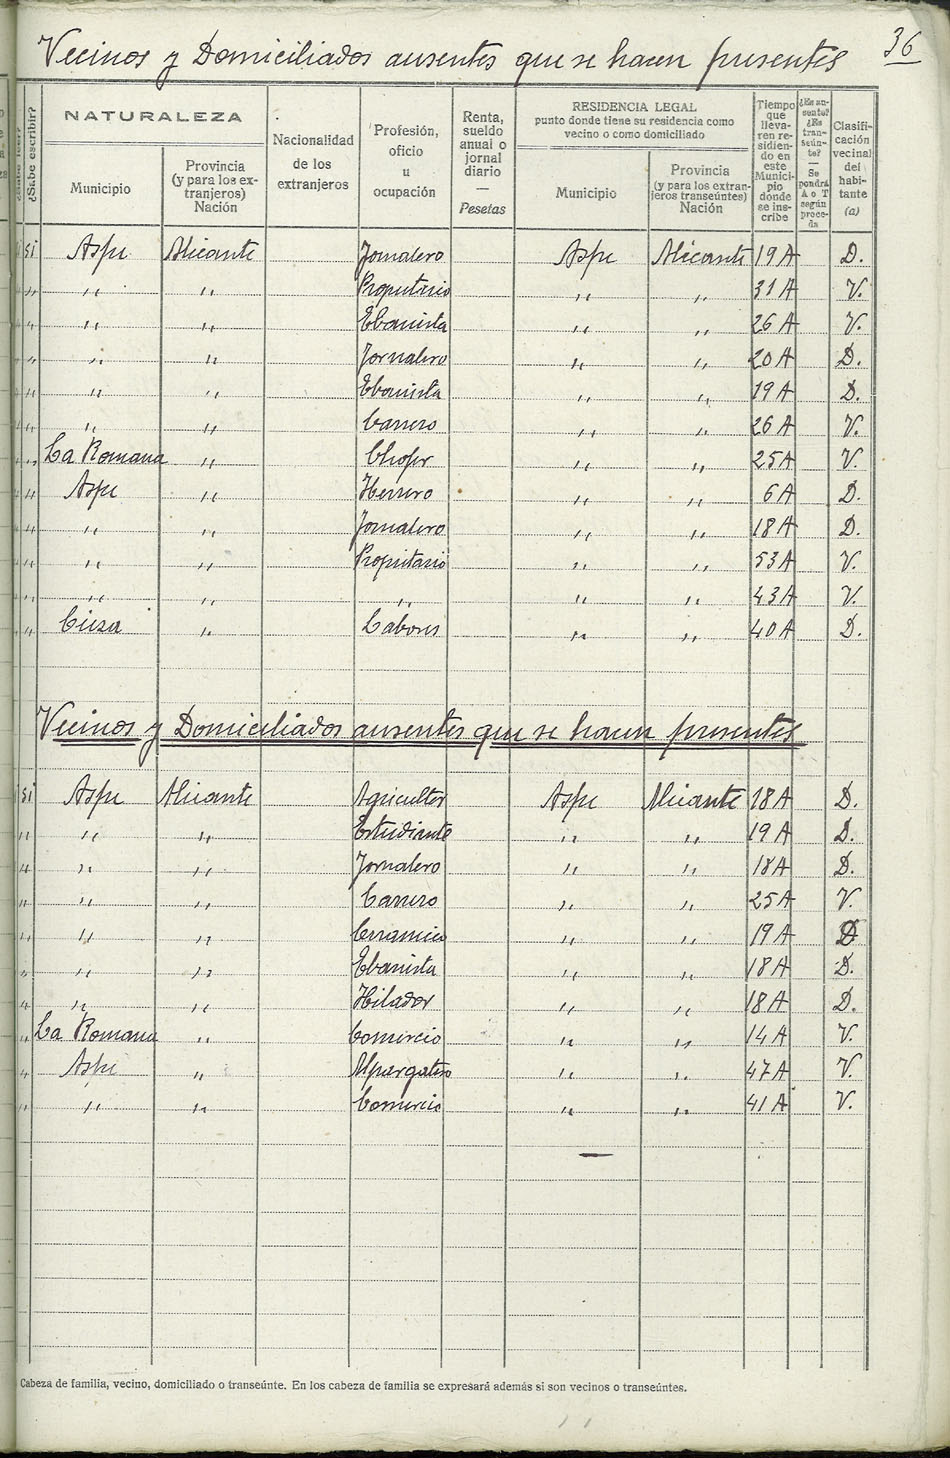 36
Vecinos y Domiciliados ausentes que se hacen presentes
¿Sabe leer?
¿Sabe escribir?
NATURALEZA
Municipio
Provincia (y para los extranjeros) Nación
Nacionalidad de los extranjeros
Profesión, oficio u ocupación
Renta, sueldo anual o jornal diario — Pesetas
RESIDENCIA LEGAL
punto donde tiene su residencia como vecino o como domiciliado
Municipio
Provincia (y para los extranjeros transeúntes) Nación
Tiempo que llevaren residiendo en este Municipio donde se inscribe
¿Es ausente? ¿Es transeúnte? — Se pondrá A o T según proceda
Clasificación vecinal del habitante (a)
si Aspe Alicante Jornalero Aspe Alicante 19 A D.
" " " Propietario " " 31 A V.
" " " Ebanista " " 26 A V.
" " " Jornalero " " 20 A D.
" " " Ebanista " " 19 A D.
" " " Carrero " " 26 A V.
" La Romana " Chofer " " 25 A V.
" Aspe " Herrero " " 6 A D.
" " " Jornalero " " 18 A D.
" " " Propietario " " 53 A V.
" " " " " " 43 A V.
" Cieza " Labores " " 40 A D.
Vecinos y Domiciliados ausentes que se hacen presentes
si Aspe Alicante Agricultor Aspe Alicante 18 A D.
" " " Estudiante " " 19 A D.
" " " Jornalero " " 18 A D.
" " " Carrero " " 25 A V.
" " " Ceramico " " 19 A D
" " " Ebanista " " 18 A D.
" " " Hilador " " 18 A D.
" La Romana " Comercio " " 14 A V.
" Aspe " Alpargatero " " 47 A V.
" " " Comercio " " 41 A V.
Cabeza de familia, vecino, domiciliado o transeúnte. En los cabeza de familia se expresará además si son vecinos o transeúntes.